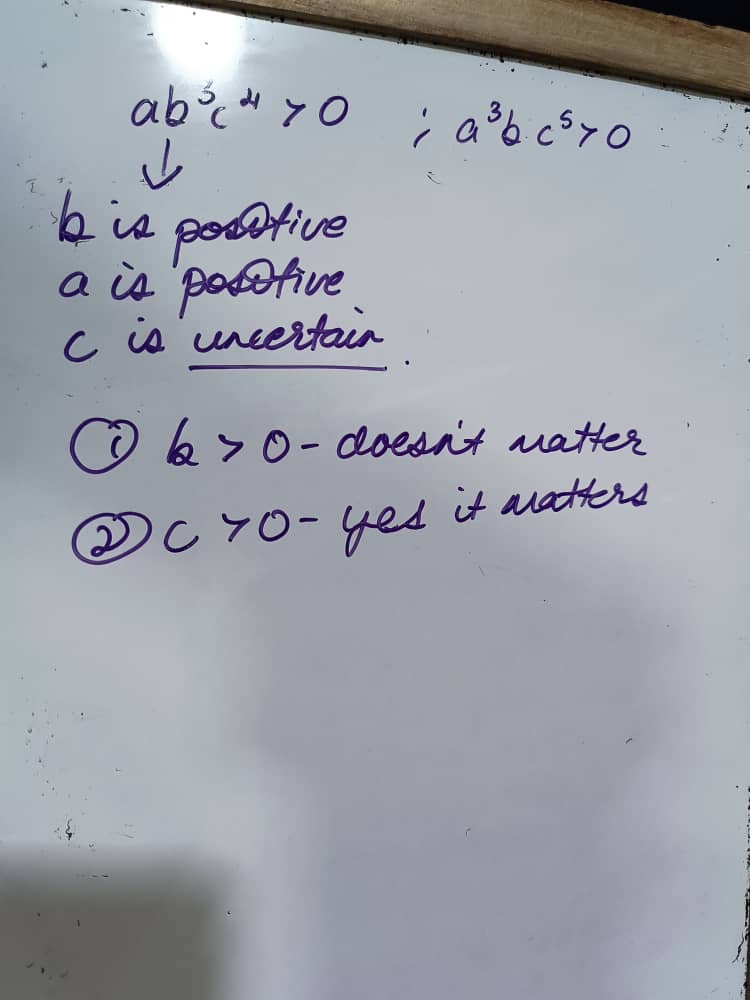 ab³c⁴ > 0 ; a³bc⁵ > 0
↓
b is positive
a is positive
c is uncertain.
① b > 0 - doesn't matter
② c > 0 - yes it matters